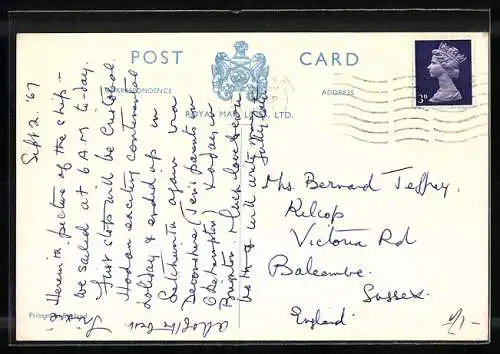 POST CARD
CORRESPONDENCE
ADDRESS
ROYAL MAIL LINES, LTD.
3D
Sept 2 '67
Herewith picture of the ship –
we sailed at 6 A.M. to-day.
First stop will be Cristobal.
Had an exciting continental
holiday & ended up in
again via
Devonshire (Jen's parents in
Okehampton) & today in
Brighton. Much love to
both & will write more
Mrs. Bernard Jeffrey,
Kilcop
Victoria Rd
Balcombe.
Sussex.
England.
Printed in England
1/-